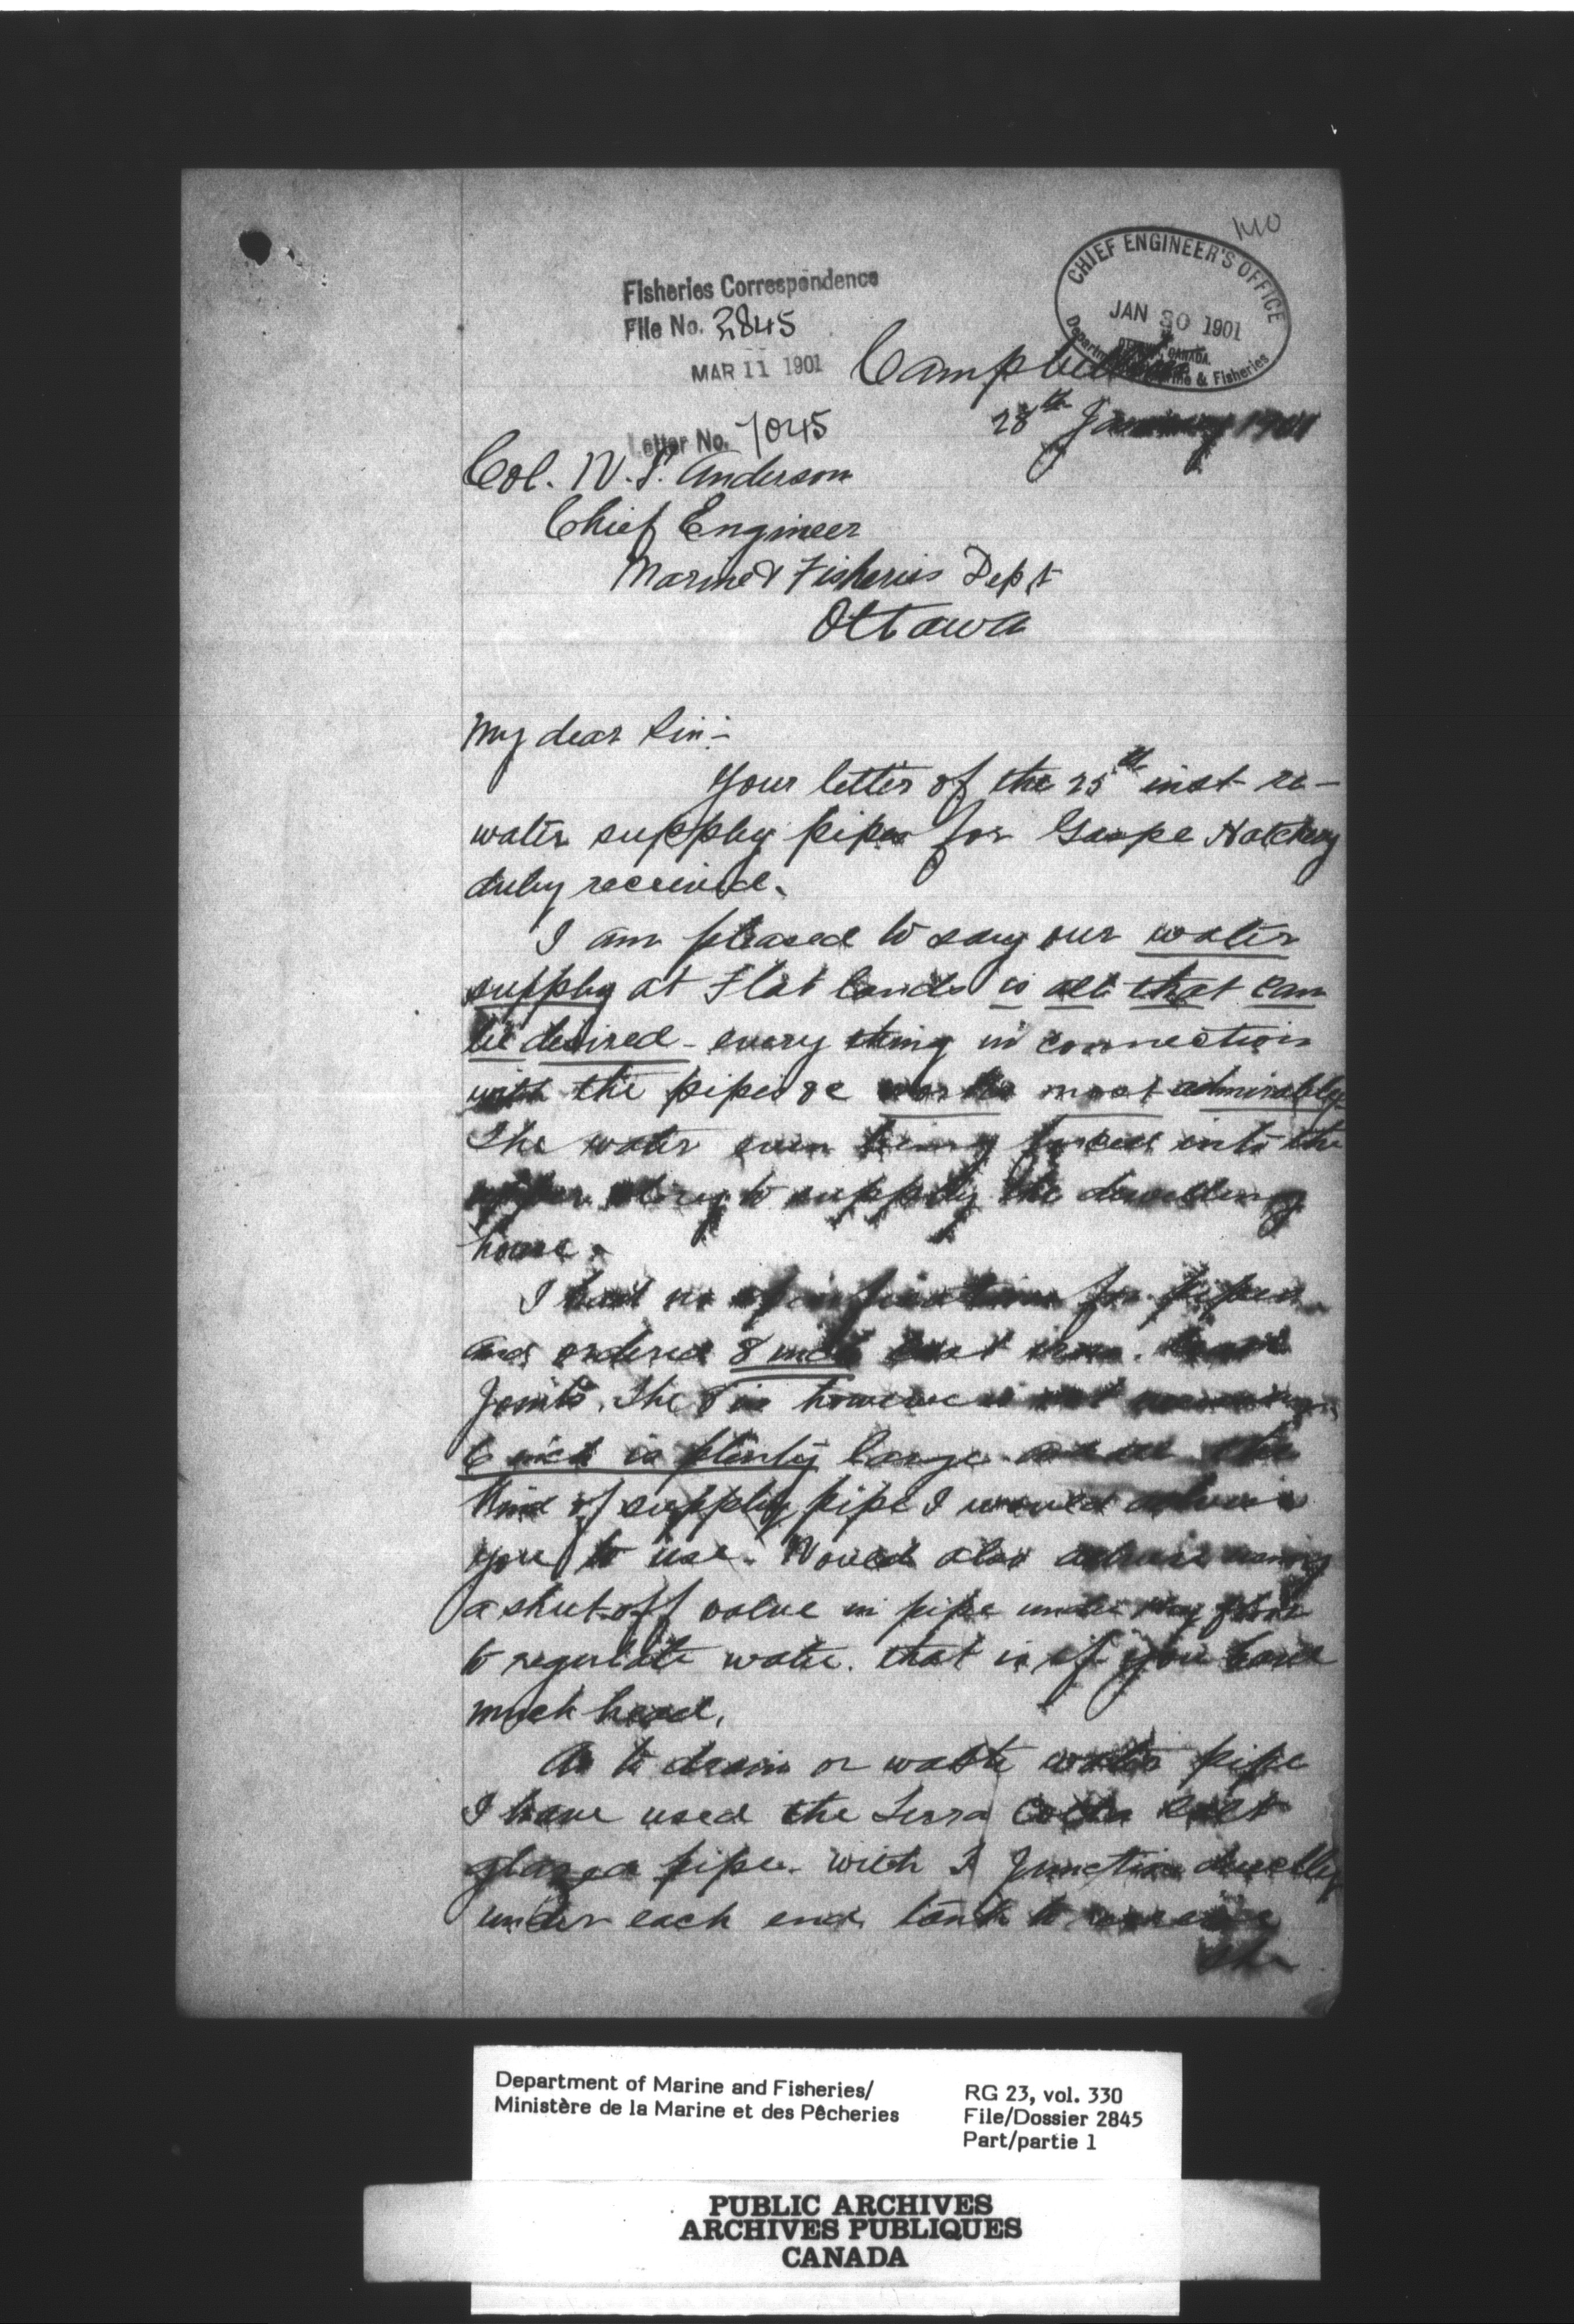 MO
CHIEF ENGINEER'S OFFICE
JAN 30 1901
OTTAWA, CANADA.
Department Marine & Fisheries
Fisheries Correspondence
File No. 2845
MAR 11 1901
Campbellton
28th January 1901
Letter No. 1045
Col. W. P. Anderson
Chief Engineer
Marine & Fisheries Dept
Ottawa
My dear Sir:-
Your letter of the 25th inst re-
water supply pipes for Gaspe Hatchery
duly received.
I am pleased to say our water
supply at Flat lands is all that can
be desired - every thing in connection
with the pipes &c works most admirably
The water even being forced into the
upper story to supply the dwelling
house.
I had no specifications for pipes
and ordered 8 inch cast iron. lead
Joints. The 8 in however is not necessary
6 inch is plenty large and the
kind of supply pipe I would advise
you to use. Would also advise using
a shut-off valve in pipe under floor
to regulate water. that is if you have
much head.
As to drain or waste water pipe
I have used the Terra Cotta salt
glazed pipe. with T Junction directly
under each end tank to receive
the
Department of Marine and Fisheries/
Ministère de la Marine et des Pêcheries
RG 23, vol. 330
File/Dossier 2845
Part/partie 1
PUBLIC ARCHIVES
ARCHIVES PUBLIQUES
CANADA